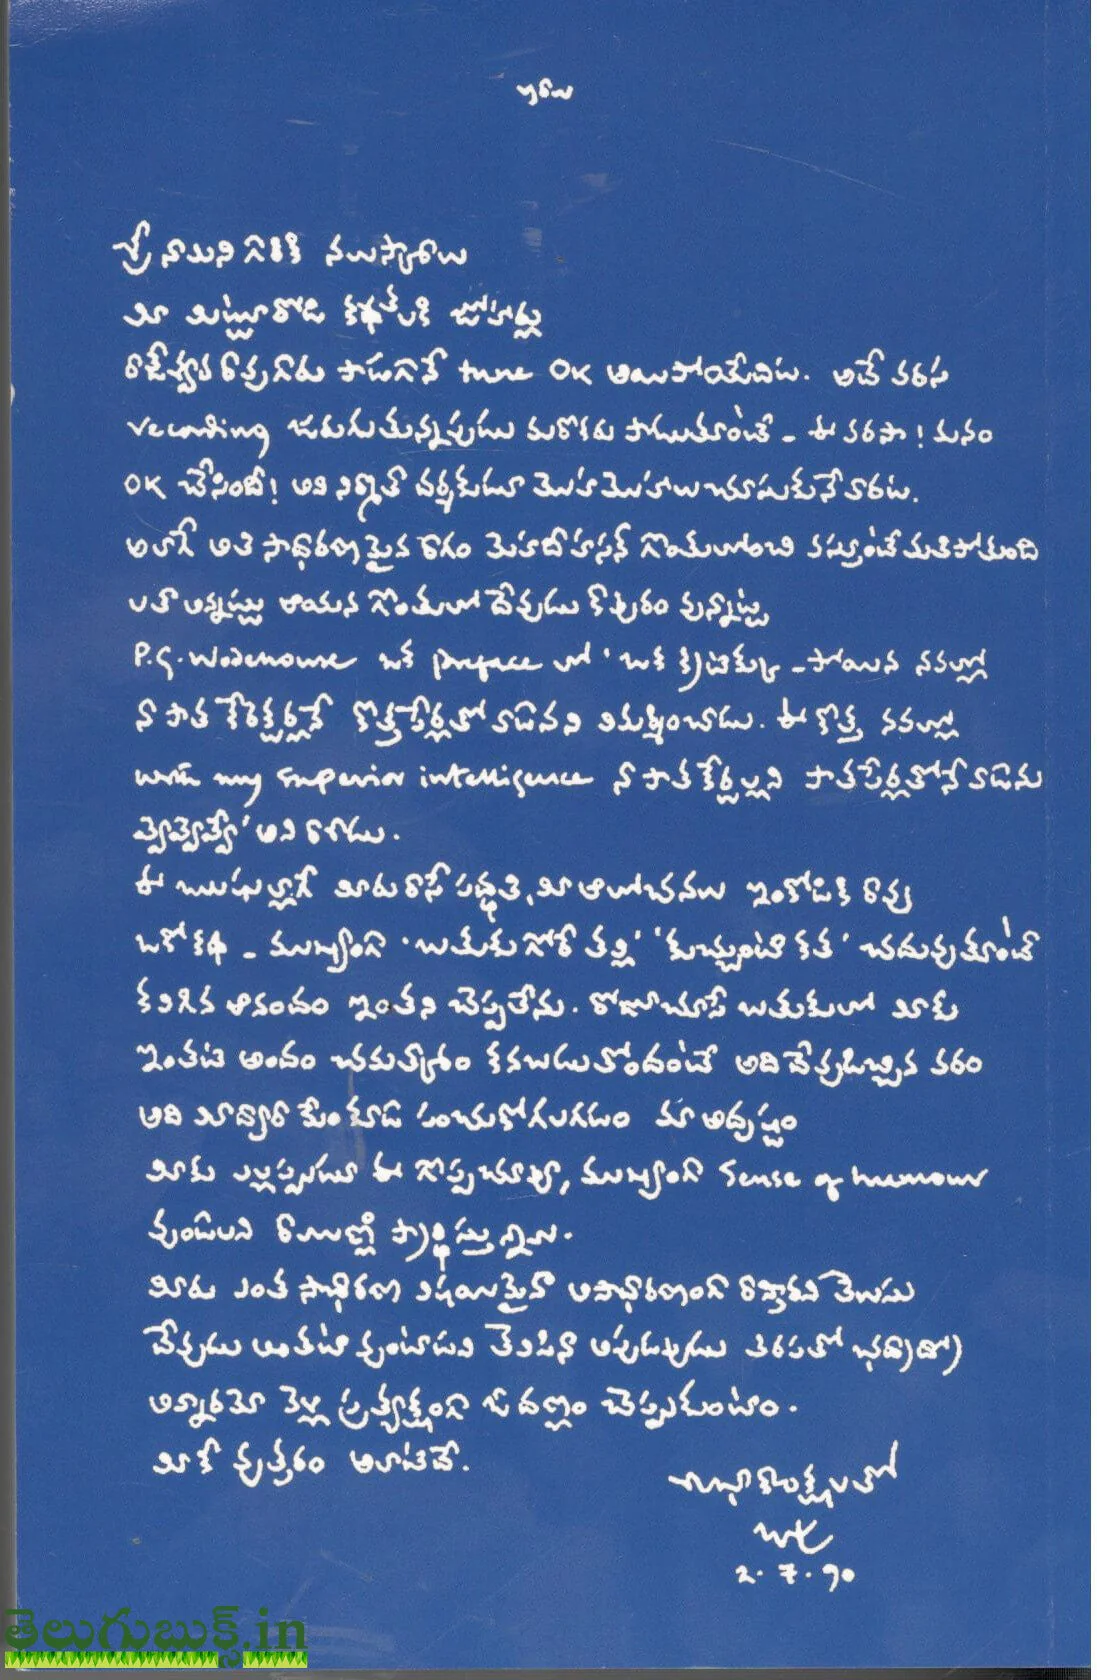 శ్రీ నామిని గారికి నమస్కారాలు
మీ మిట్టూరోడి కథలకి జోహార్లు
రాజేశ్వర రావుగారు పాడగానే tune OK అయిపోయేదిట. అదే వరస
recording జరుగుతున్నపుడు మరొకరు పాడుతూంటే - ఈ వరసా! మనం
OK చేసింది! అని నిర్మాతా దర్శకుడూ మొహమొహాలు చూసుకునేవారట.
అలాగే అతి సాధారణమైన రాగం మెహదీహసన్ గొంతులోంచి వస్తుంటే మతిపోతుంది
లతా అన్నట్టు ఆయన గొంతులో దేవుడు కాపురం వున్నాట్ట
P.G. Wodehouse ఒక preface లో 'ఒక క్రిటిక్కు - పోయిన నవల్లో
నా పాత కేరెక్టర్లనే కొత్తపేర్లతో వాడేనని విమర్శించాడు. ఈ కొత్త నవల్లో
with my superior intelligence నా పాత కేరెక్టర్లని పాతపేర్లతోనే వాడేను
వ్వెవ్వెవ్వే' అని రాశాడు.
ఈ ఋషుల్లాగే మీరు రాసే పద్ధతి, మీ ఆలోచనలు ఇంకోడికి రావు
ఒకో కథ - ముఖ్యంగా 'బతుకు గోరే తల్లి' 'కుచ్చుంటే కత' చదువుతూంటే
కలిగిన ఆనందం ఇంతని చెప్పలేను. రోజూచూసే బతుకులో మీకు
ఇంతటి అందం చమత్కారం కనబడుతోందంటే అది దేవుడిచ్చిన వరం
అది మీద్వారా మేం కూడా పంచుకోగలగడం మా అదృష్టం
మీకు ఎల్లప్పుడూ ఈ గొప్పచూపూ, ముఖ్యంగా sense of humour
వుండాలని రాముణ్ణి ప్రార్థిస్తున్నాను.
మీరు ఎంత సాధారణ విషయమైనా అసాధారణంగా రాస్తారని తెలుసు
దేవుడు అంతటా వుంటాడని తెలిసినా అపుడపుడు తిరుపతో భద్రాద్రో
అన్నారమో వెళ్లి ప్రత్యక్షంగా ఓ దణ్ణం చెప్పుకుంటాం.
మీకీ వుత్తరం అలాటిదే.
శుభాకాంక్షలతో
2. 7. 90
తెలుగుబుక్స్.in